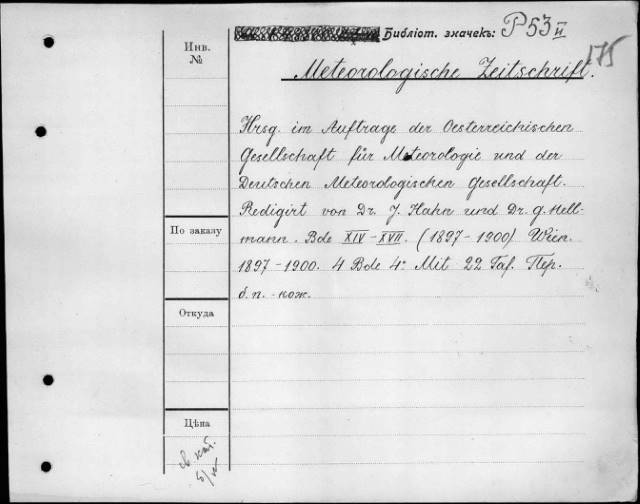 Библіот. значекъ: P53 II
175
Инв.
№
Meteorologische Zeitschrift.
Hrsg. im Auftrage der Oesterreichischen
Gesellschaft für Meteorologie und der
Deutschen Meteorologischen Gesellschaft.
Redigirt von Dr. J. Hahn und Dr. G. Hell-
mann. Bde XIV-XVII. (1897-1900) Wien.
1897-1900. 4 Bde 4° Mit 22 Taf. Пер.
б. п. - кож.
По заказу
Откуда
Цѣна